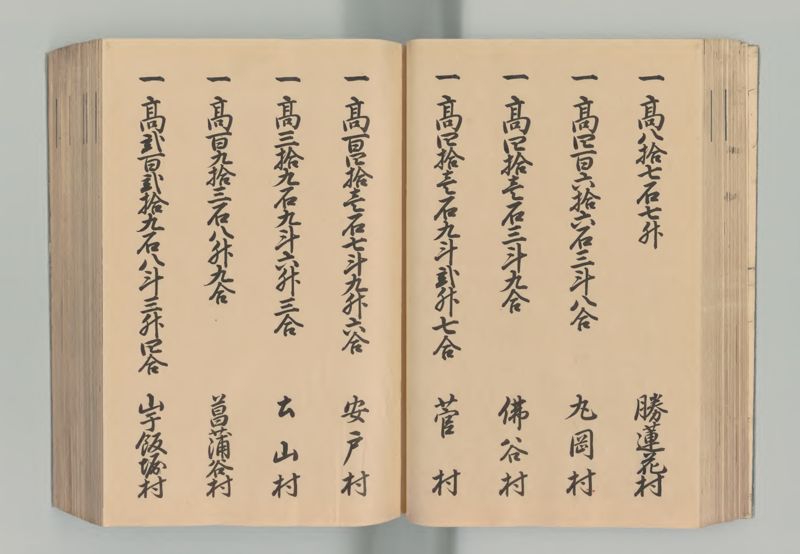 一 高八拾七石七升 勝蓮花村
一 高四百六拾六石三斗八合 丸岡村
一 高四拾壱石三斗九合 佛谷村
一 高四拾壱石九斗弐升七合 菅村
一 高百四拾壱石七斗九升六合 安戸村
一 高三拾九石九斗六升三合 大山村
一 高百九拾三石八升九合 菖蒲谷村
一 高弐百弐拾九石八斗三升四合 山干飯堀村